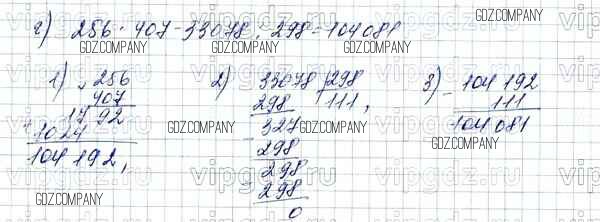 г) 256 · 407 - 33078 : 298 = 104081
GDZ.COMPANY
GDZ.COMPANY
GDZ.COMPANY
1) × 256
407
1792
+ 1024
104192,
2) 33078 | 298
298 111,
- 327
298
- 298
- 298
0
3) - 104192
111
104081
GDZ.COMPANY
GDZ.COMPANY
GDZ.COMPANY
GDZ.COMPANY
GDZ.COMPANY
vipgdz.ru